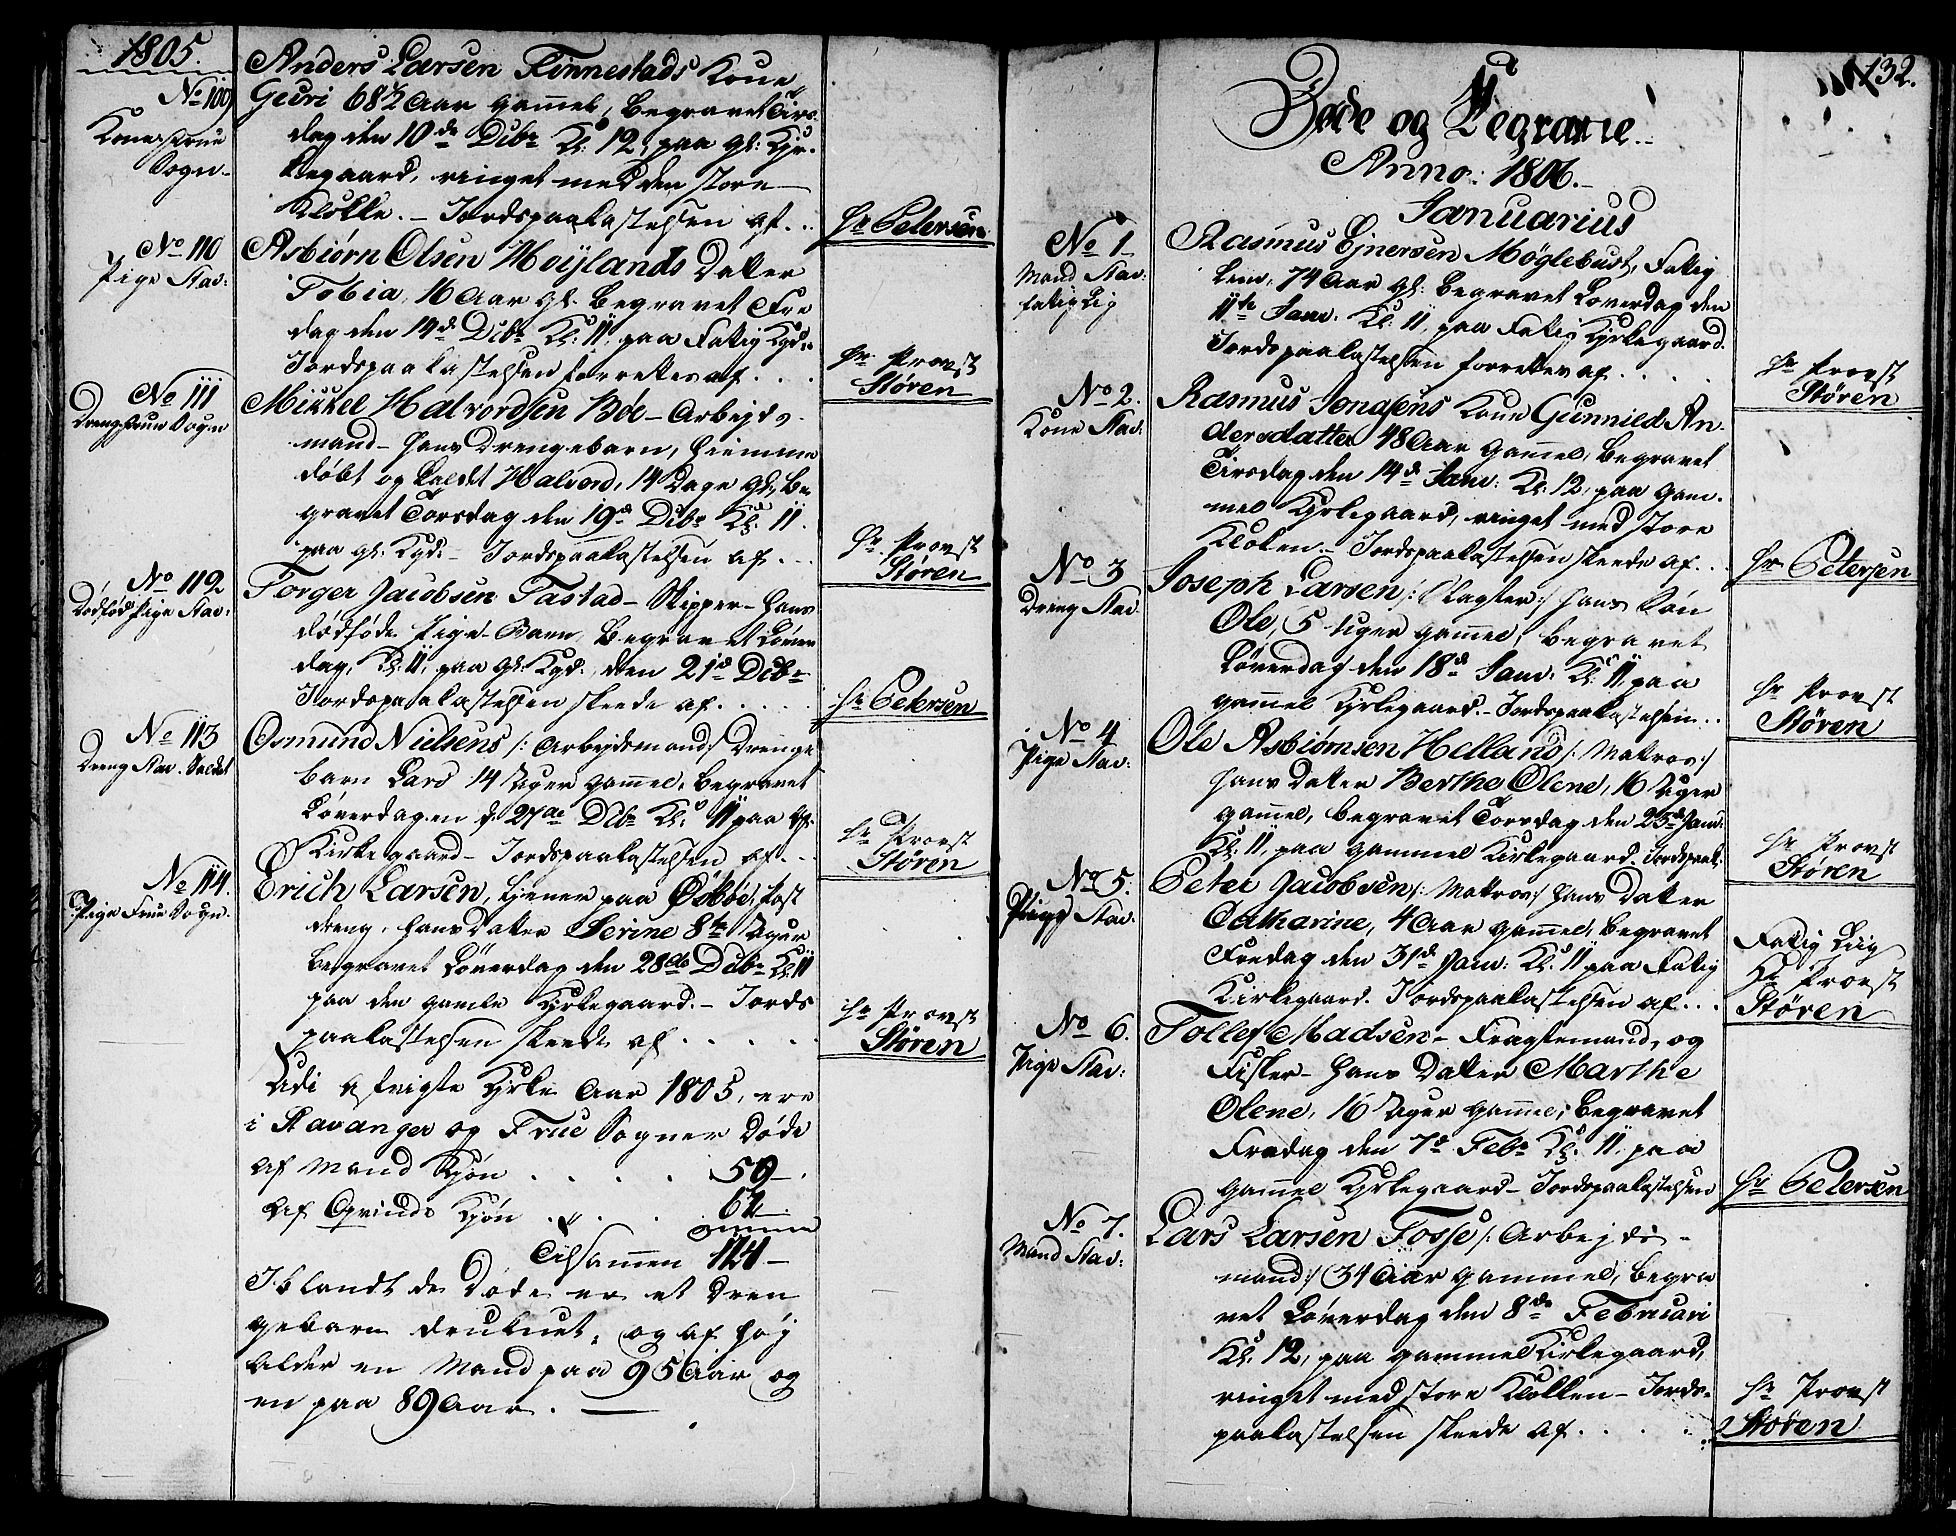 1805.
No 109
Kone Frue
Sogn
Anders Larsen Finnestads Kone
Guri 68½ Aar gammel, begravet Tirs
dag den 10de Dcbr Kl: 12, paa gl: Kyr-
kegaard, ringet med den store
Klokke. – Jordspaakastelsen af . .
Hr Petersen
No 110
Pige Stav:
Asbiørn Olsen Høijlands Datter
Tobia, 16 Aar gl. begravet Fre
dag den 14d Dcbr Kl: 11, paa Fattig Kgd.
Jordspaakastelsen forrettes af . . .
Hr Provst
Støren
No 111
Dreng Frue Sogn
Mikkel Halvordsen Bøe – Arbejds-
mand – hans Drengebarn, hiemme
døbt og kaldet Halvord, 14 Dage gl, be
gravet Torsdag den 19d Dcbr Kl 11.
paa gl: Kgd: – Jordspaakastelsen af . . .
Hr Provst
Støren
No 112
Dødfød Pige Stav:
Torger Jacobsen Tastad – Skipper – hans
dødføde Pige-Barn, begravet Løver
dag, Kl: 11, paa gl: Kgd., den 21d Dcbr
Jordspaakastelsen skeede af . . . . .
Hr Petersen
No 113
Dreng Stav.
Osmund Nielsens /: Arbejdsmand :/ Drenge
barn Lars 14 Uger gammel, begravet
Løverdagen d. 27de Dcbr Kl: 11 paa gl:
Kirkegaard – Jordspaakastelsen af . . .
Hr Provst
Støren
No 114.
Pige Frue Sogn.
Erich Larsen, tjener paa Østbøe, Post
dreng, hans Datter Serine 8te Uger
begravet Løverdag den 28de Dcbr Kl 11
paa den gamle Kyrkegaard. – Jords
paakastelsen skeede af . . . . .
Hr Provst
Støren
Udi afvigte Kyrke Aar 1805, ere
i Stavanger og Frue Sogner Døde
Af Mand Kjøn . . . . 50 –
Af Qvinde Kjøn . . . 64
Tilsammen 114 –
Iblandt de Døde er et Dren
gebarn druknet, og af høj
Alder en Mand paa 95 Aar og
en paa 89 Aar. –
132.
Døde og Begravne.
Anno: 1806. –
Januarius
No 1
Mand Stav:
fattig Lig
Rasmus Ejnersen Møglebust, Fattig
Lem, 74 Aar gl: begravet Løverdag den
11te Janv: Kl: 11, paa Fattig Kyrkegaard.
Jordspaakastelsen forrettes af . . . . .
Hr Provst
Støren
No 2.
Kone Stav:
Rasmus Jonasens Kone Gunnild An-
dersdatter 48 Aar gammel, begravet
Tirsdag den 14d Janv: Kl: 12, paa gam-
mel Kyrkegaard, ringet med store
Klokken. – Jordspaakastelsen skeede af . .
Hr Petersen
No 3
Dreng Stav
Joseph Larsen /: Slagter :/ hans Søn
Ole, 5 Uger gammel, begravet
Løverdag den 18d Janv: Kl: 11 paa
gammel Kyrkegaard. – Jordspaakastelsen . .
Hr Provst
Støren
No 4
Pige Stav:
Ole Asbiørnsen Helland /: Matros :/
hans Datter Berthe Olene, 16 Uger
gammel, begravet Torsdag den 23d Janv:
Kl: 11, paa gammel Kirkegaard. Jordspaak:
Hr Provst
Støren
No 5.
Pige Stav:
Peter Jacobsen /: Matros :/ hans Datter
Catharine, 4 Aar gammel, begravet
Fredag den 31d Janv: Kl. 11 paa Fattig
Kirkegaard. Jordspaakastelsen af . . .
Fattig Liig
Hr Provst
Støren
No 6.
Pige Stav:
Tollef Madsen – Fragtemand, og
Fisker – hans Datter Marthe
Olene, 16 Uger gammel, begravet
Fredag den 7d Febr Kl: 11, paa
gammel Kyrkegaard – Jordspaakastelsen
Hr Petersen
No 7.
Mand Stav:
Lars Larsen Fosse /: Arbejds-
mand :/ 34 Aar gammel, begra
vet Løverdag den 8de Februari
Kl: 12, paa gammel Kirkegaard,
ringet med store Klokken – Jords-
paakastelsen skeede af . . . . .
Hr Provst
Støren